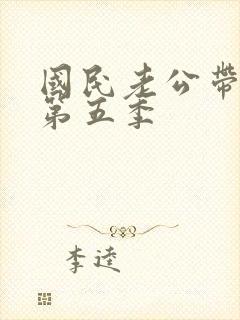 國民老公帶
第五季
李逵